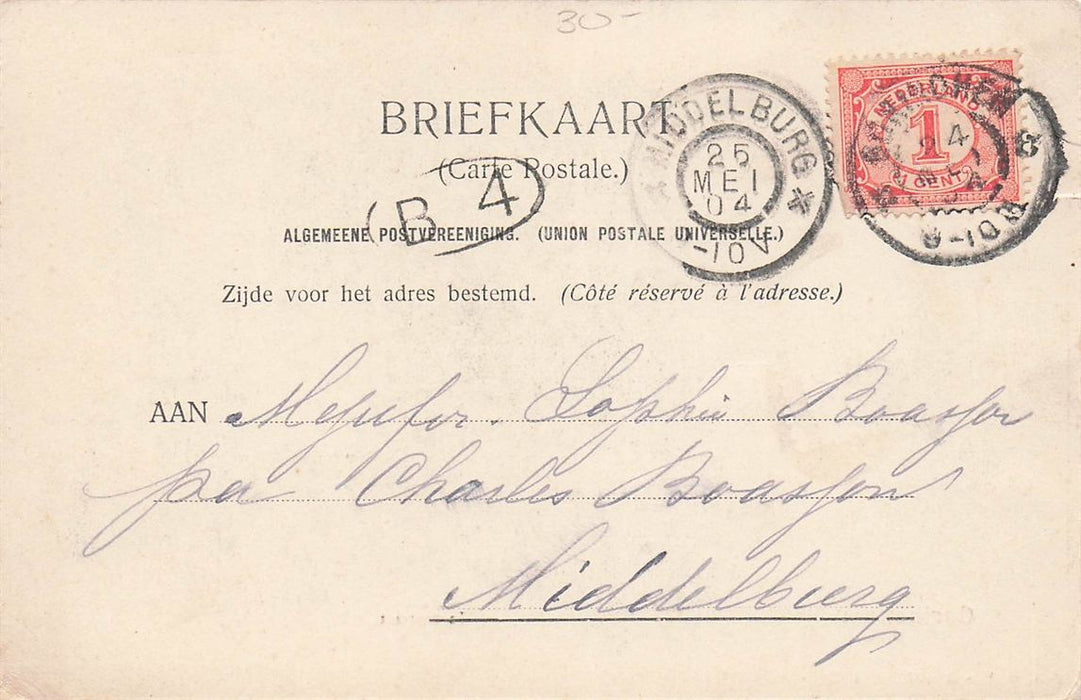 30-
BRIEFKAART
(Carte Postale.)
B 4
ALGEMEENE POSTVEREENIGING. (UNION POSTALE UNIVERSELLE.)
Zijde voor het adres bestemd. (Côté réservé à l'adresse.)
MIDDELBURG
25
MEI
04
-10V
NEDERLAND
1
CENT
8-10
AAN Mejufvr. Sophie Boasson
pa Charles Boasson
Middelburg